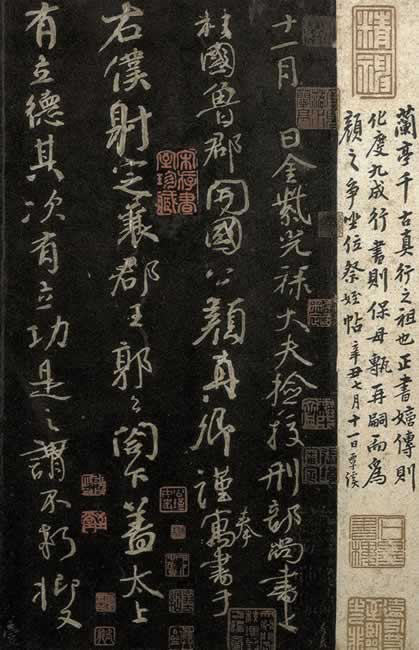 蘭亭千古真行之祖也正書嬗傳則
化度九成行書則保母甎再嗣而為
顏之争坐位祭姪帖 辛丑七月十一日覃溪
十一月 日金紫光祿大夫撿挍刑部尚書上
柱國魯郡開國公顏真卿謹奉寓書于
右僕射定襄郡王郭公閤下蓋太上
有立德其次有立功是之謂不朽抑又
宋存書室珍藏